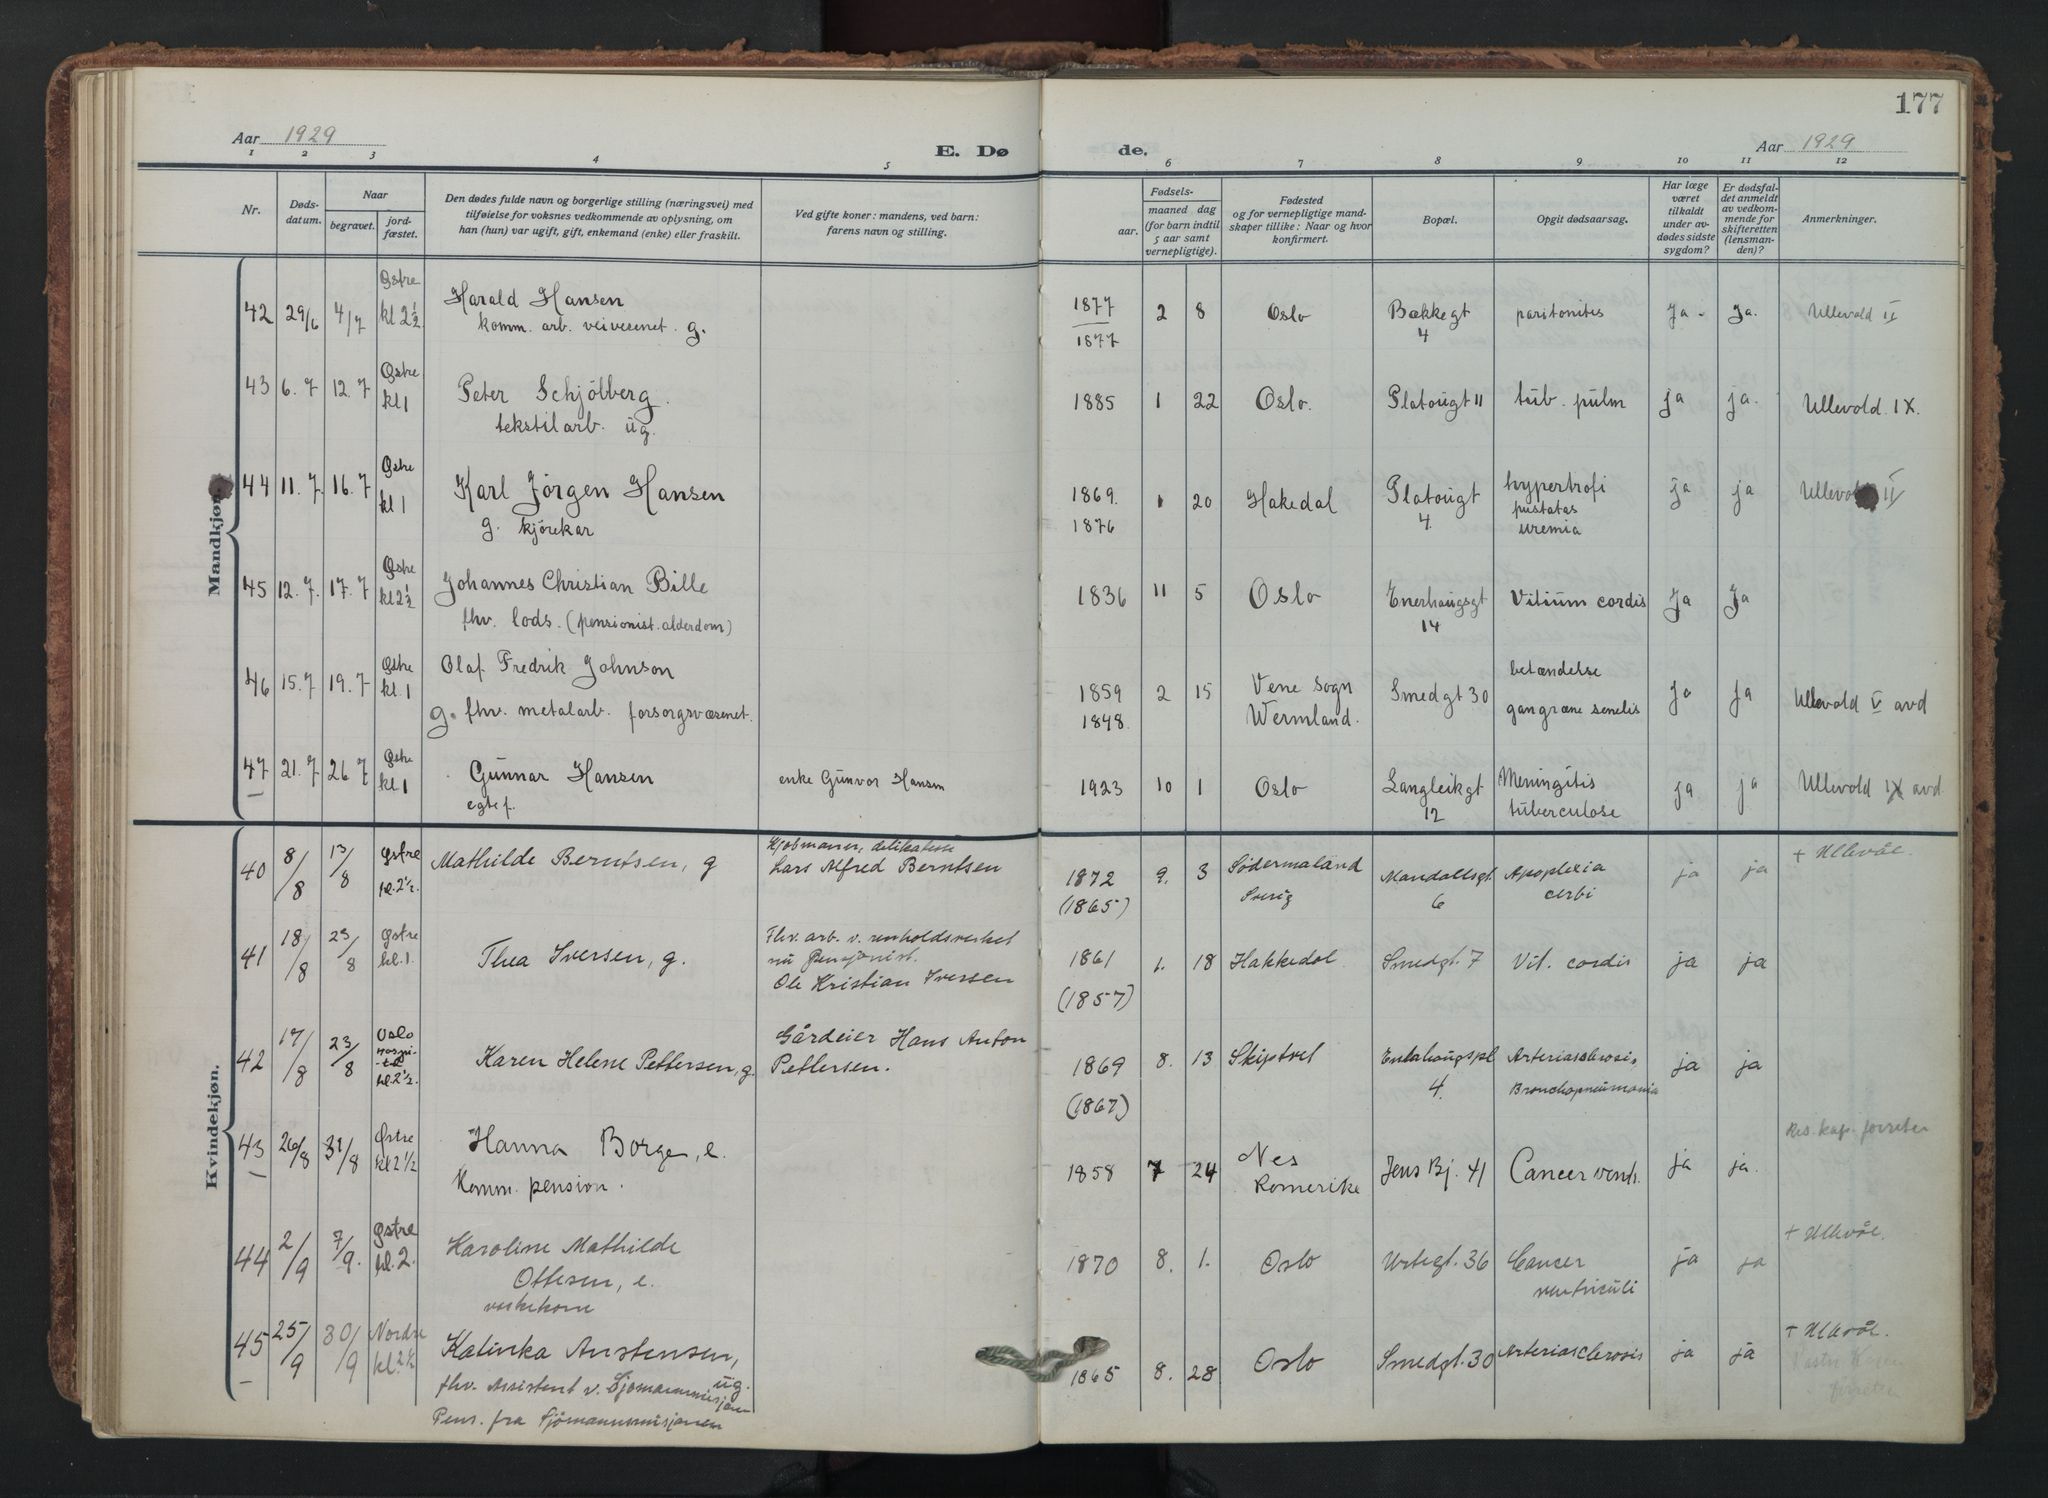 177
Aar 1929
E. Dø
de.
Aar 1929
1 2 3 4 5 6 7 8 9 10 11 12
Nr.
Døds-
datum.
Naar
begravet.
jord-
fæstet.
Den dødes fulde navn og borgerlige stilling (næringsvei) med
tilføielse for voksnes vedkommende av oplysning, om
han (hun) var ugift, gift, enkemand (enke) eller fraskilt.
Ved gifte koner: mandens, ved barn:
farens navn og stilling.
Fødsels-
aar.
maaned dag
(for barn indtil
5 aar samt
vernepligtige).
Fødested
og for vernepligtige mand-
skaper tillike: Naar og hvor
konfirmert.
Bopæl.
Opgit dødsaarsag.
Har læge
været
tilkaldt
under av-
dødes sidste
sygdom?
Er dødsfal-
det anmeldt
av vedkom-
mende for
skifteretten
(lensman-
den)?
Anmerkninger.
Mandkjøn.
42 29/6 4/7 Østre kl 2½ Harald Hansen
komm. arb. veivesenet. g.
1877 2 8 Oslo Bækkegt 4 paritonitis Ja - Ja. Ullevold II
1877
43 6. 7 12. 7 Østre kl 1 Peter Schjölberg.
tekstilarb. ug.
1885 1 22 Oslo. Platougt 11 tub. pulm ja ja. Ullevold. IX.
44 11. 7. 16. 7 Østre kl 1 Karl Jörgen Hansen
g. kjörekar
1869. 1 20 Hakedal Platougt 4. hypertrofi pustatas uremia ja ja Ullevold II
1876
45 12. 7. 17. 7 Østre kl 2½ Johannes Christian Bille
fhv. lods. (pensionist. alderdom)
1836 11 5 Oslo Enerhaugsgt 14 Vitium cordis Ja Ja
46 15. 7 19. 7 Østre kl. 1 Olaf Fredrik Johnson
g. fhv. metalarb. forsorgsvæsenet.
1859 2 15 Vene sogn Wermland. Smedgt 30 betændelse gangræne senelis Ja Ja Ullevold V avd
1848.
47 21. 7 26 7 Østre kl 1 Gunnar Hansen
egtef.
enke Gunvor Hansen
1923 10 1 Oslo Langleikgt 12 Meningitis tuberculose ja ja Ullevold IX avd
Kvindekjøn.
40 8/8 13/8 Østre kl. 2½. Mathilde Berntsen, g
Kjøbmann, delikatesse
Lars Alfred Berntsen
1872 9. 3 Södermaland Sverig Mandallsgt. 6 Apoplexia cerbi ja ja + Ullevål.
(1865)
41 18/8 23/8 Østre kl. 1. Thea Iversen, g.
Fhv. arb. v. renholdsverket
nu Pensjonist.
Ole Kristian Iversen
1861 1. 18 Hakkedal Smedgt. 7 Vit. cordis ja ja
(1857)
42 17/8 23/8 Oslo Hospital kl. 2½. Karen Helene Pettersen, g.
Gårdeier Hans Anton
Pettersen.
1869 8. 13 Skiptvet 4. Arteriasclerosis, Bronchopneumonia ja ja
(1867)
43 26/8 31/8 Østre kl 2½ Hanna Borge, e.
Komm. pension.
1858 7 24 Nes Romerike Jens Bj. 41 Cancer ventr. ja ja. Res. kap. forretter
44 2/9 7/9. Østre kl. 2. Karoline Mathilde
Ottesen, e.
vaskekone
1870 8. 1. Oslo Urtegt. 36 Cancer ventriculi ja ja + Ullevål.
45 25/9 30/9 Nordre kl. 2½ Katinka Anstensen,
ug.
fhv. Assistent v. Sjømannmisjonen
Pens. fra Sjömannsmisjonen
1865 8. 28 Oslo Smedgt. 30 Arteriasclerosis ja ja + Ullevål.